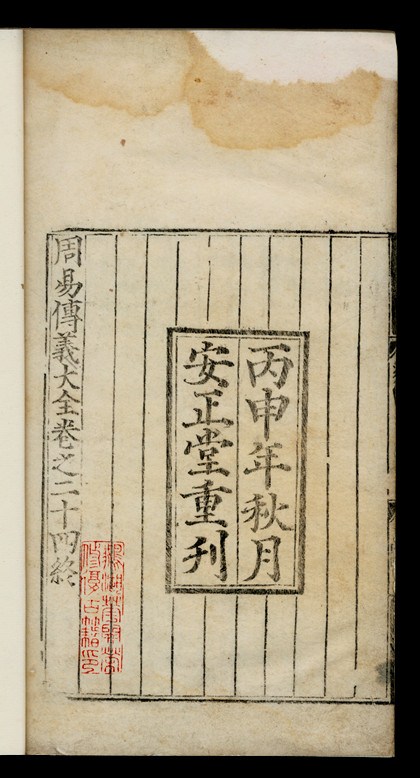 丙申年秋月
安正堂重刊
周易傳義大全卷之二十四終